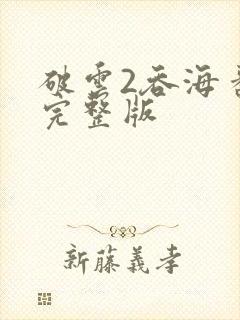 破雲2吞海
完整版
新藤義孝